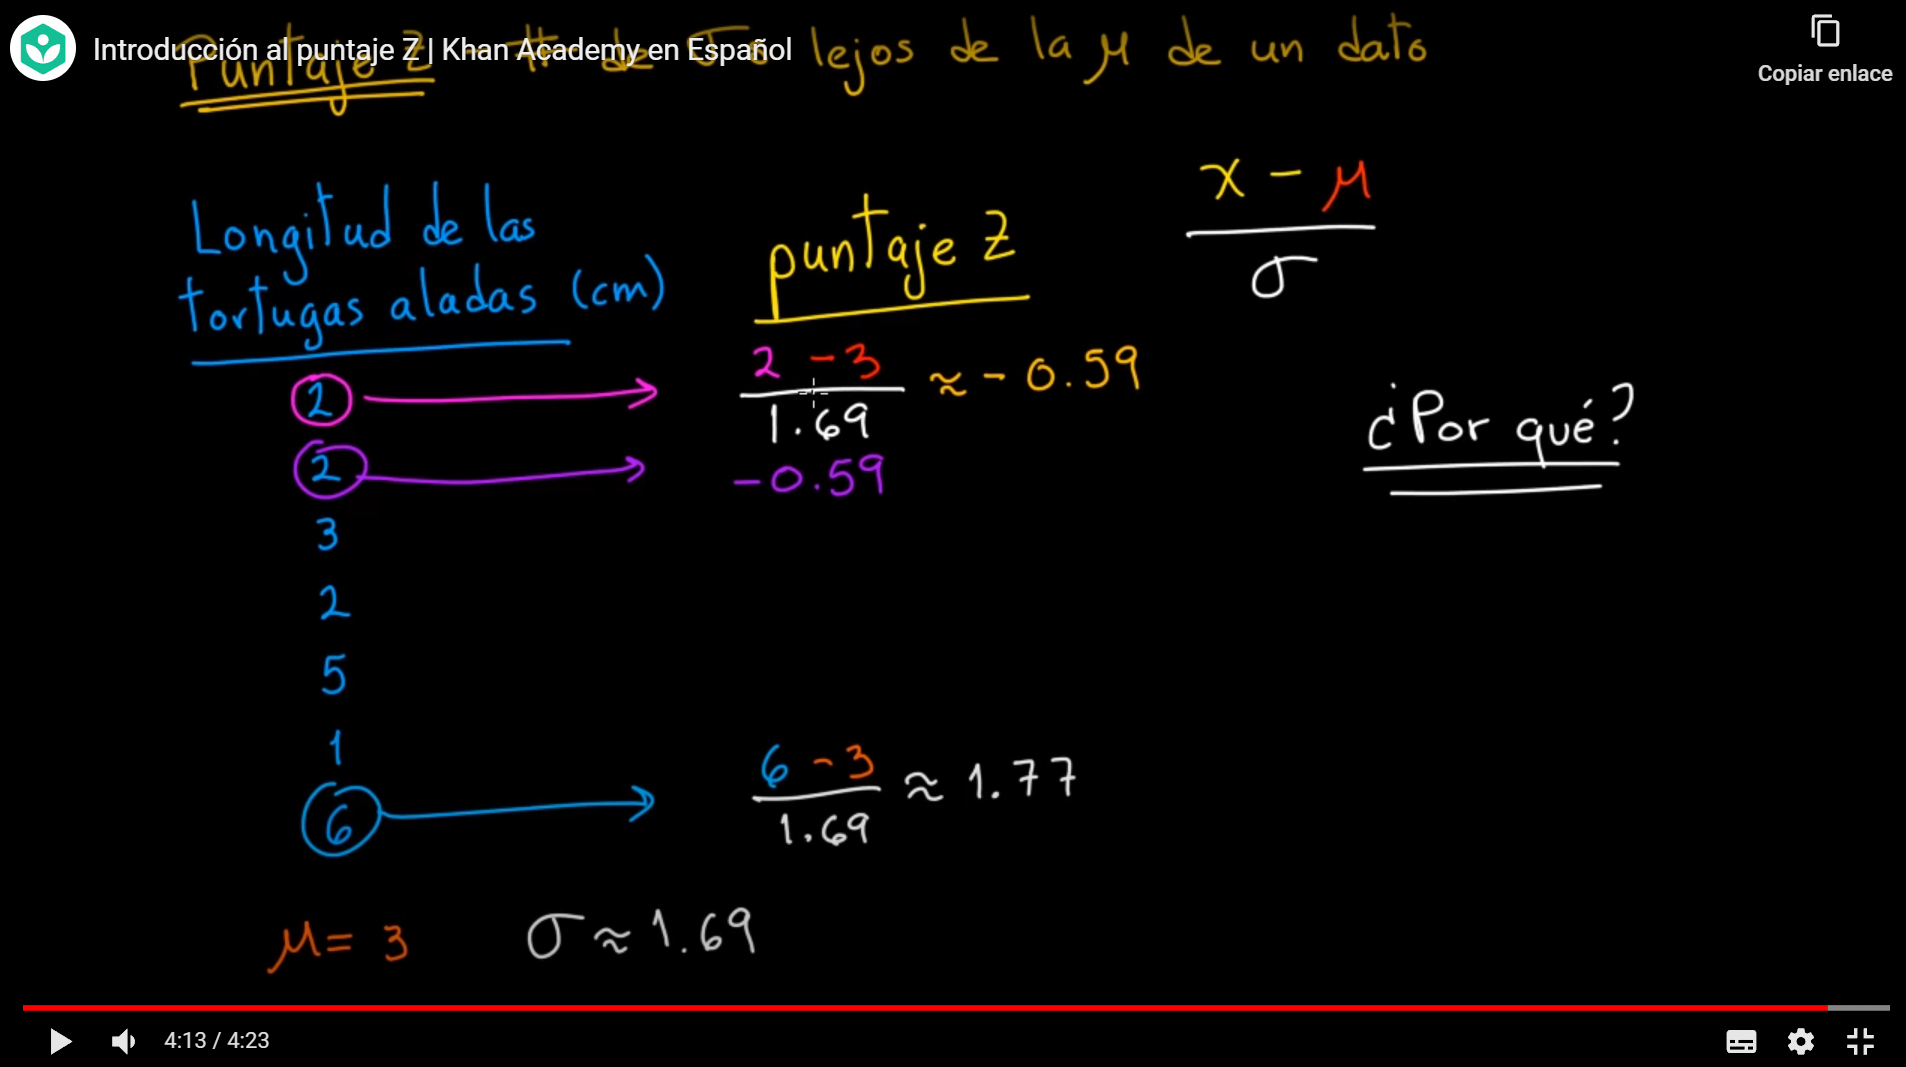 Introducción al puntaje Z | Khan Academy en Español
Copiar enlace
Puntaje Z - # de σs lejos de la μ de un dato
Longitud de las
tortugas aladas (cm)
puntaje Z
x - μ
σ
2
2 - 3
1.69
≈ - 0.59
¿Por qué?
2
-0.59
3
2
5
1
6
6 - 3
1.69
≈ 1.77
μ = 3
σ ≈ 1.69
4:13 / 4:23